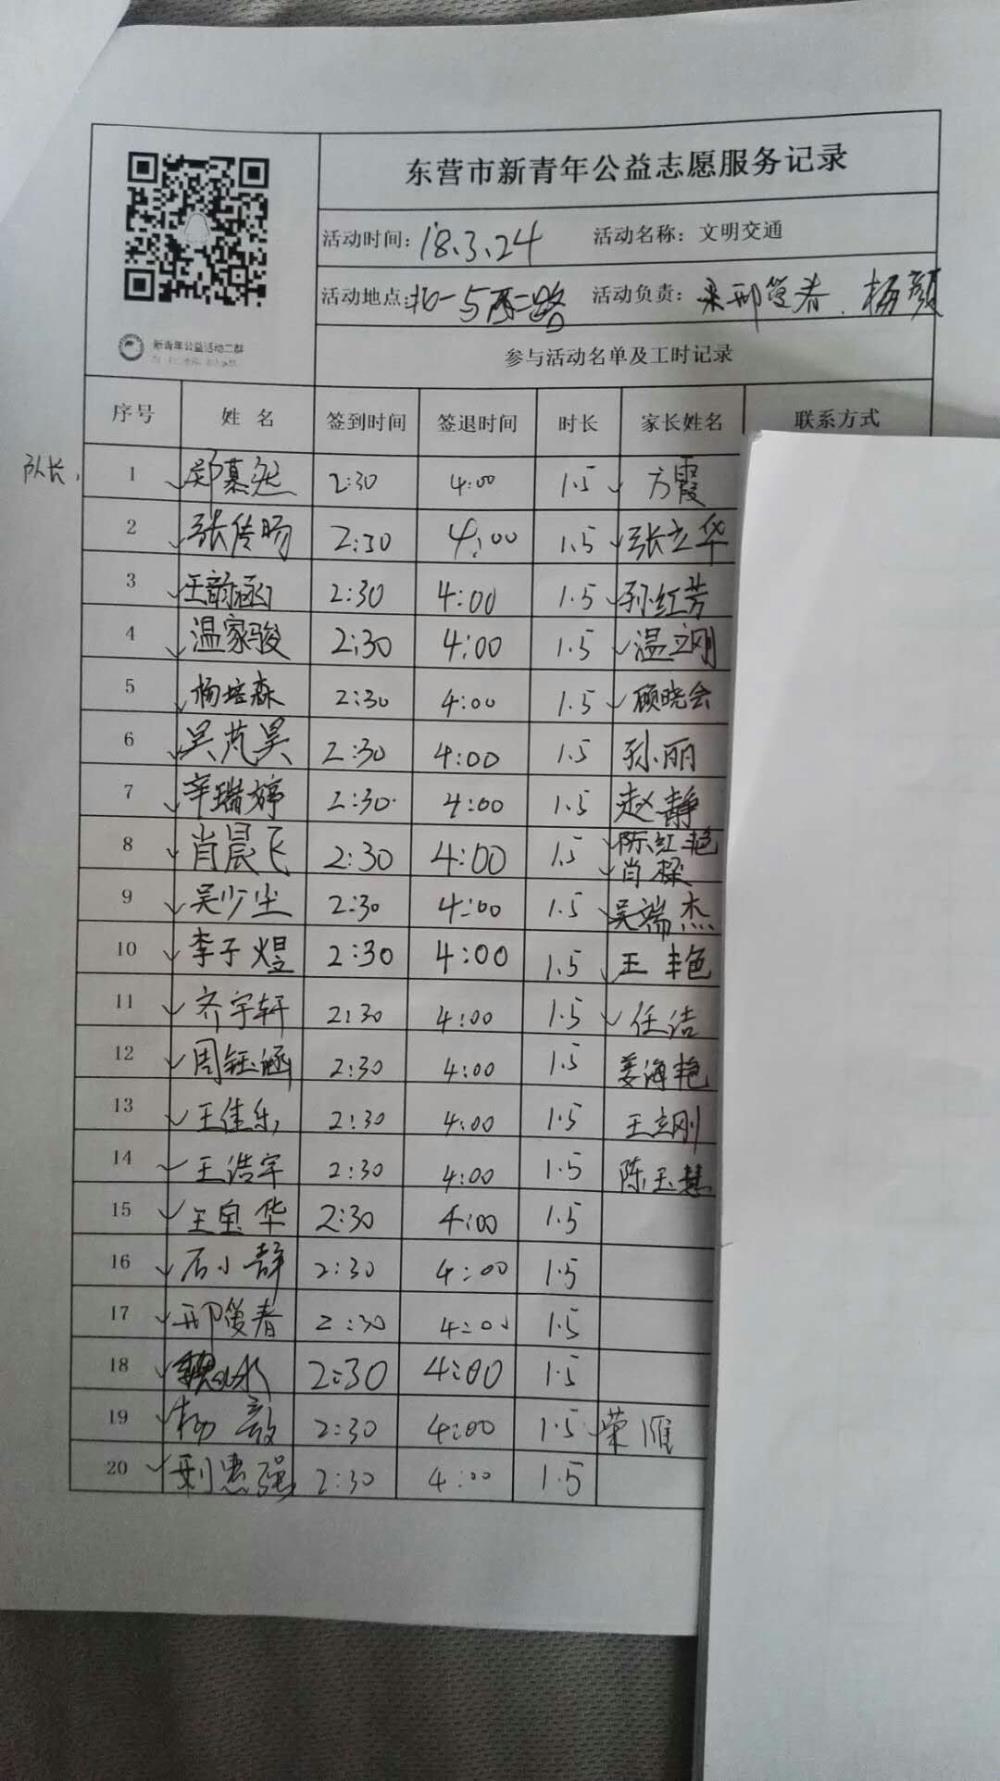 东营市新青年公益志愿服务记录
活动时间: 18.3.24 活动名称: 文明交通
活动地点: 北一与西二路 活动负责: 邢俊春、杨颜
新青年公益活动二群
参与活动名单及工时记录
序号 姓名 签到时间 签退时间 时长 家长姓名 联系方式
队长, 1 郑慕然 2:30 4:00 1.5 方霞
2 张传旸 2:30 4:00 1.5 张立华
3 王韵涵 2:30 4:00 1.5 孙红芳
4 温家骏 2:30 4:00 1.5 温立刚
5 杨培森 2:30 4:00 1.5 顾晓会
6 吴芃昊 2:30 4:00 1.5 孙丽
7 辛瑞婷 2:30 4:00 1.5 赵静
8 肖晨飞 2:30 4:00 1.5 陈红艳
肖樑
9 吴少尘 2:30 4:00 1.5 吴端杰
10 李子煜 2:30 4:00 1.5 王艳
11 齐宇轩 2:30 4:00 1.5 任洁
12 周钰涵 2:30 4:00 1.5 姜海艳
13 王佳乐 2:30 4:00 1.5 王立刚
14 王浩宇 2:30 4:00 1.5 陈玉慧
15 王宝华 2:30 4:00 1.5
16 石小静 2:30 4:00 1.5
17 邢俊春 2:30 4:00 1.5
18 2:30 4:00 1.5
19 杨 2:30 4:00 1.5 荣雁
20 2:30 4:00 1.5